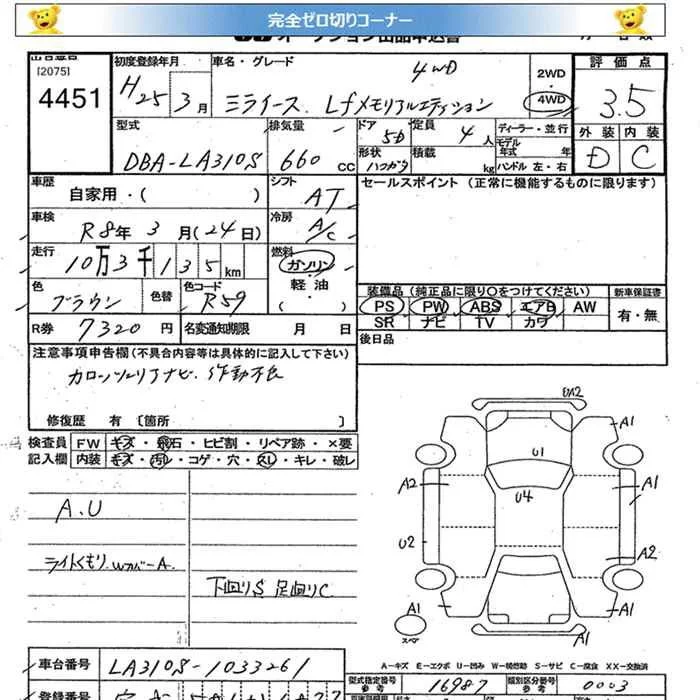 完全ゼロ切りコーナー
オークション出品申込書
出品番号
[2075]
4451
初度登録年月
H25年3月
車名・グレード
4WD
ミライース Lfメモリアルエディション
2WD
4WD
評価点
3.5
外装 内装
D C
型式
DBA-LA310S
排気量
660 CC
ドア 5D
形状 ハッチバック
定員 4人
積載 kg
ディーラー・並行
モデル年式 年
ハンドル 左・右
車歴
自家用・( )
シフト
AT
セールスポイント (正常に機能するものに限ります)
車検
R8年3月(24日)
冷房
A/C
走行
10万3千135km
燃料
ガソリン
軽油
( )
色
ブラウン
色替
色コード
R59
装備品 (純正品に限り○をつけてください)
新車保証書
PS PW ABS エアB AW
SR ナビ TV カワ
有・無
R券 7320円
名変通知期限 月 日
後日品
注意事項申告欄(不具合内容等は具体的に記入して下さい)
カロッツェリアナビ. 作動不良
修復歴 有 〔箇所 〕
検査員 FW キズ・飛石・ヒビ割・リペア跡・×要
記入欄 内装 キズ・汚レ・コゲ・穴・スレ・キレ・破レ
A.U
ライトくもり. WカバーA.
下回りS 足回りC
UA2
A1
U1
A2
U4
A1
U2
A2
A1
A1
スペア
A1
A−キズ E−エクボ U−凹み W−補修跡 S−サビ C−腐食 XX−交換済
車台番号 LA310S-1033261
型式指定番号
参考
16987
類別区分番号
参考
0003
登録番号